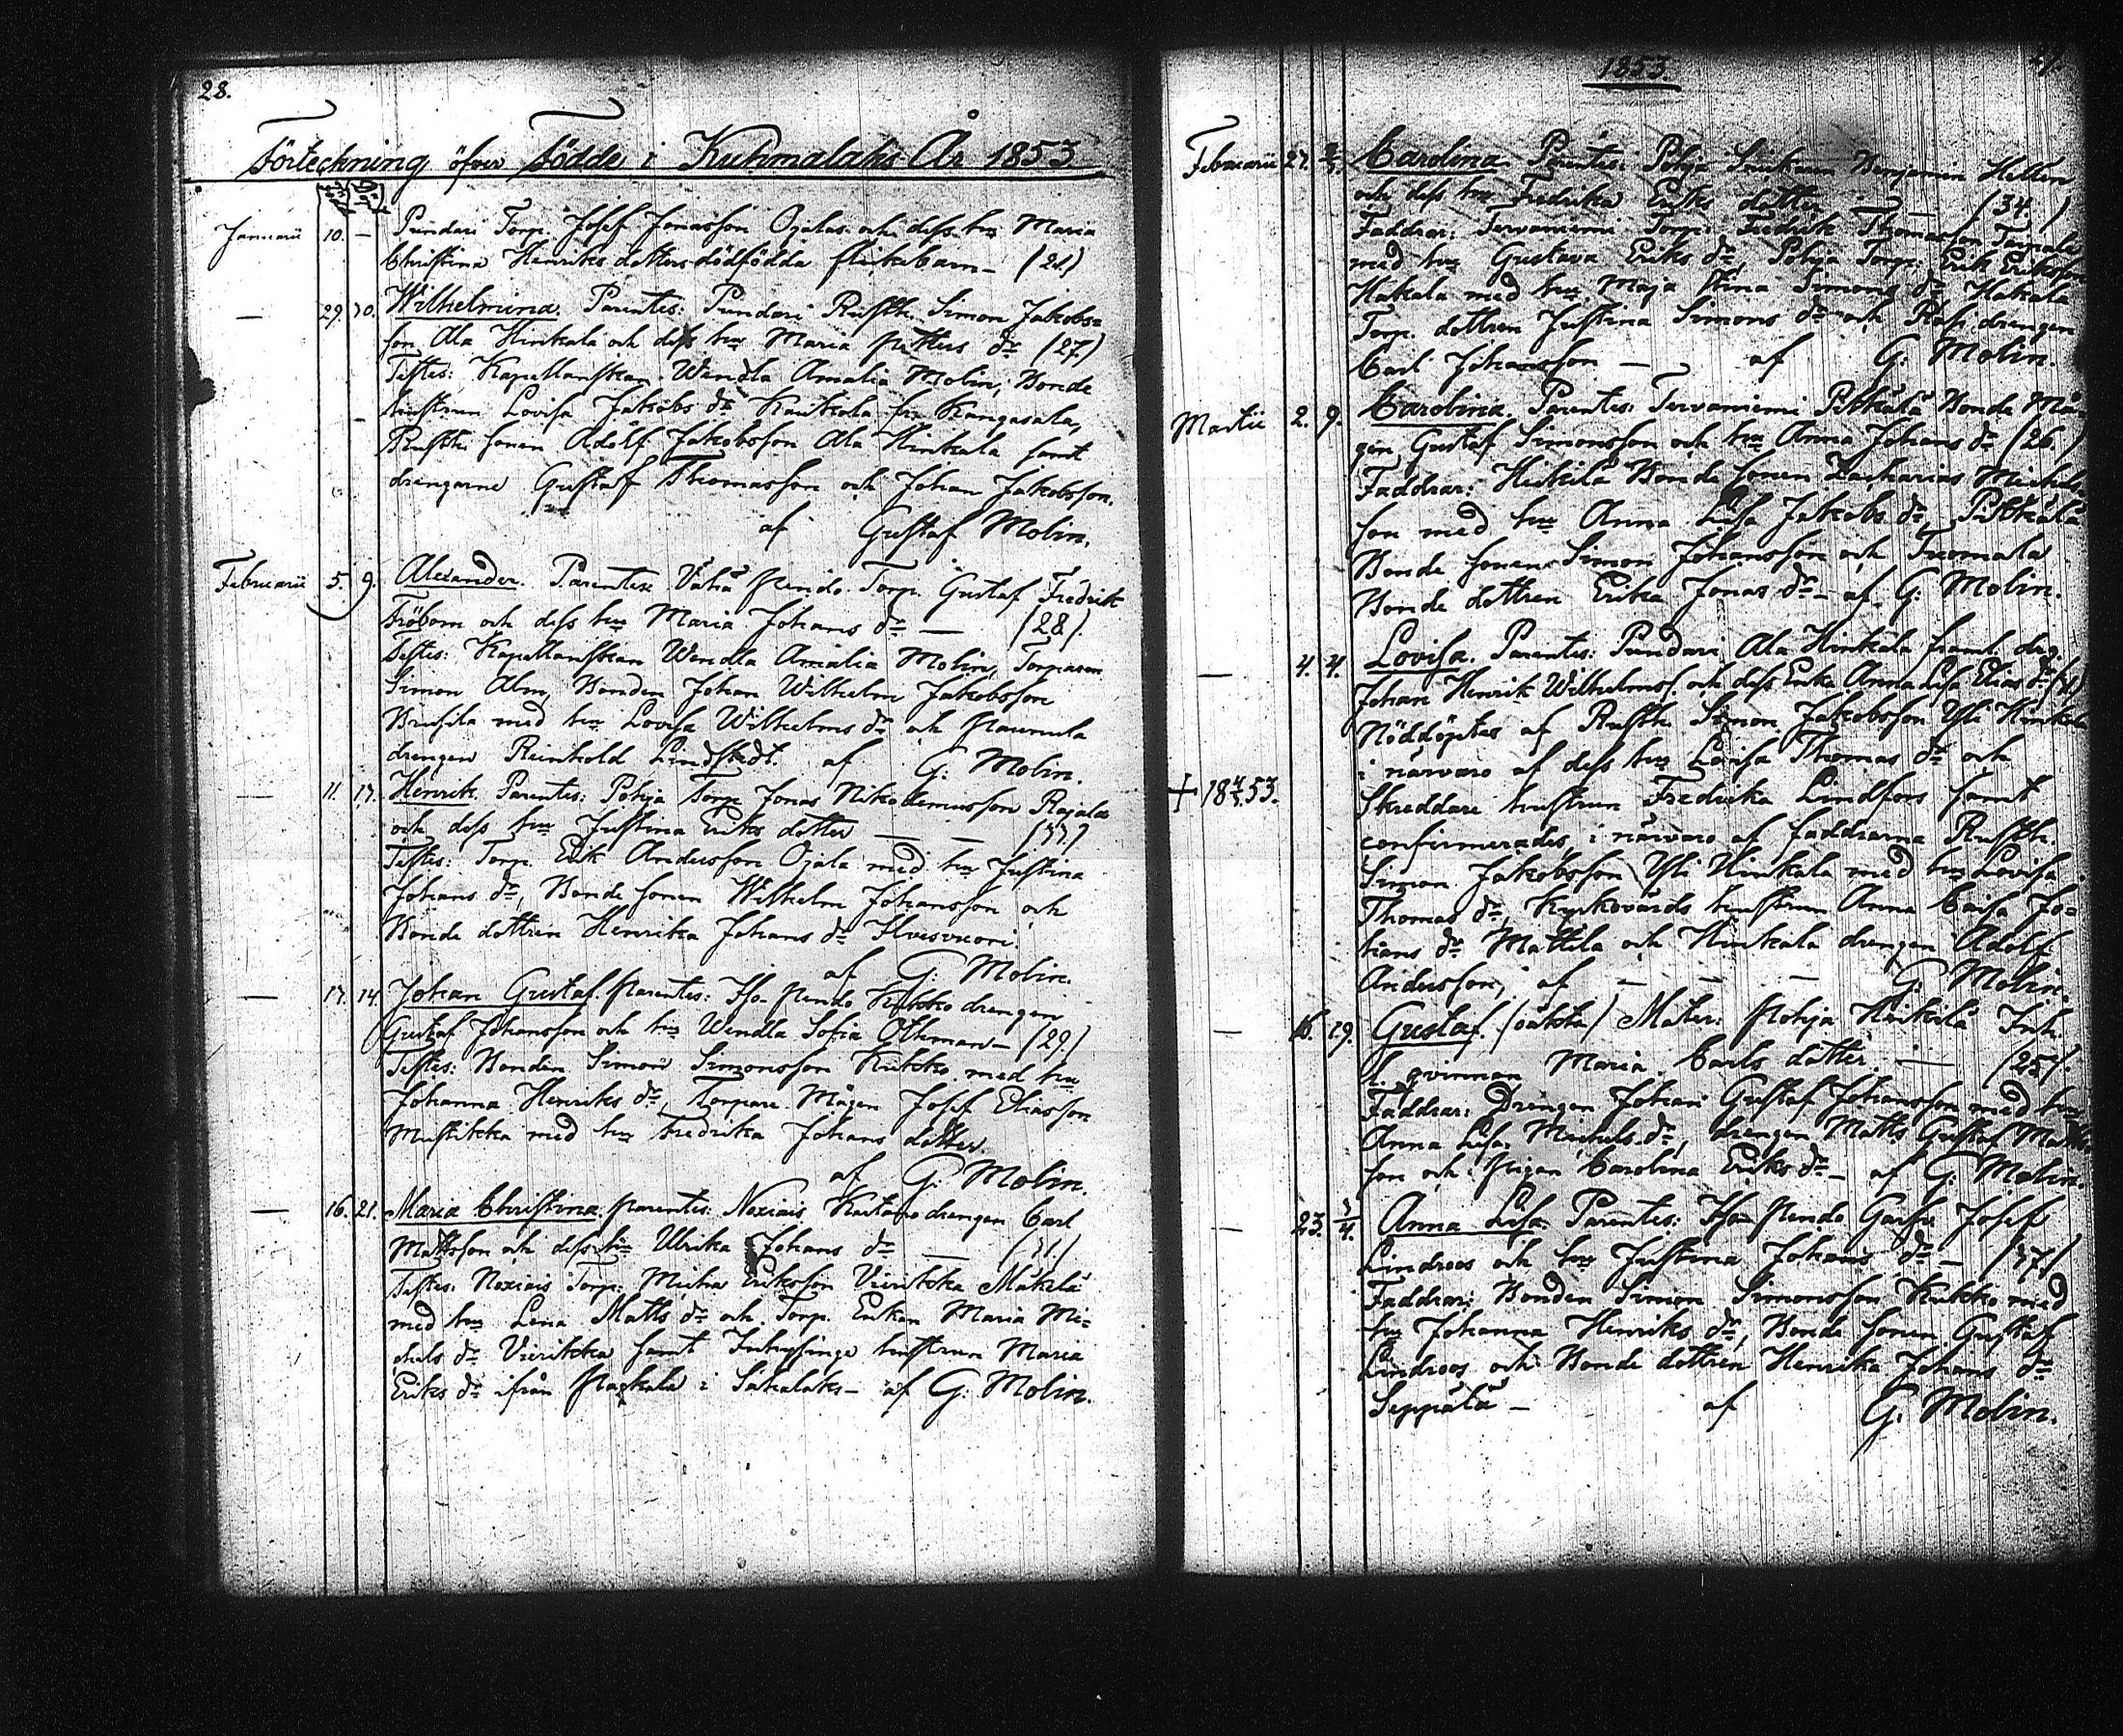 28.
Förteckning öfver Födde i Kuhmalaks År 1853
Januarii 10. — Pundari Torp. Josef Jonasson Ojalas och dess hu Maria
Christina Henriks dotters dödfödda flickebarn — (21.)
— 29. 30. Wilhelmina. Parentes: Pundari Rusth. Simon Jakobs=
son Ala Hinkala och dess hu Maria Petters dr (27)
Testes: Kapellanskan Wendla Amalia Molin, Bonde
hustrun Lovisa Jakobs dr Kaukola fr Kangasala,
Rusth. sonen Adolf Jakobsson Ala Hinkala samt
drengarne Gustaf Thomasson och Johan Jakobsson.
af Gustaf Molin.
Februarii 5. 9. Alexander. Parentes: Vähä Pendo Torp. Gustaf Fredrik
Fröbom och dess hu Maria Johans dr — (28).
Testes: Kapellanskan Wendla Amalia Molin, Torparen
Simon Alm, Bonden Johan Wilhelm Jakobsson
Brusila med hu Lovisa Wilhelms dr och Paunula
drengen Reinhold Lindstedt. af G. Molin.
— 11. 17. Henrik. Parentes: Pohja Torp. Jonas Nikodemusson Rajala
och dess hu Justina Eriks dotter — — (37)
Testes: Torp. Erik Andersson Ojala med hu Justina
Johans dr, Bonde sonen Wilhelm Johansson och
Bonde dottren Henrika Johans dr Ilvesvuori
af G. Molin.
— 17. 14. Johan Gustaf. Parentes: Iso Pendo Kukko drengen
Gustaf Johansson och hu Wendla Sofia Othman — (29.)
Testes: Bonden Simon Simonsson Kukko med hu
Johanna Henriks dr, Torpare Mågen Josef Eliasson
Mustikka med hu Fredrika Johans dotter.
af G. Molin.
— 16. 21. Maria Christina. Parentes: Noxiais drengen Carl
Mattsson och dess hu Ulrika Johans dr — (31.)
Testes: Noxiais Torp. Michel Eriksson Vierikka Mäkelä
med hu Lena Matts dr och Torp. Enkan Maria Mi=
chels dr Vierikka samt Inhysinge hustrun Maria
Eriks dr ifrån i Sahalaks — af G. Molin.
1853.
29.
Februarii 27. Carolina Parentes: Pohja Benjamin Hellen
och dess hu Fredrika Eriks dotter — — (34.)
Faddrar: Tervaniemi Torp. Fredrik Thomasson
med hu Gustava Eriks dr, Pohja Torp. Erik Eriksson
Hakala med hu Maja Stina Simons dr Hakala
Torp. dottren Justina Simons dr och drengen
Carl Johansson — af G. Molin.
Martii 2. 9. Carolina. Parentes: Tervaniemi Pitkälä Bonde Må=
gen Gustaf Simonsson och hu Anna Johans dr (26.)
Faddrar: Heikilä Bonde sonen Zacharias Michels
son med hu Anna Lisa Jakobs dr, Pitkälä
Bonde sonen Simon Johansson och Tuomala
Bonde dottren Erika Jonas dr — af G. Molin.
— 4. 4. Lovisa. Parentes: Pundari Ala Hinkala framl. drg.
Johan Henrik Wilhelmss. och dess Enka Anna Lisa Elias dr
Nöddöptes af Rusth. Simon Jakobsson Yli Hinkala
i närvaro af dess hu Lovisa Thomas dr och
+ 18 4/5 53. Skreddare hustrun Fredrika Lindfors samt
confirmerades, i närvaro af faddrarne Rusth.
Simon Jakobsson Yli Hinkala med hu Lovisa
Thomas dr, Kyrkovärds hustrun Anna Caisa Jo=
hans dr Mattila och Hinkala drengen Adolf
Andersson, af — — — G. Molin.
— 16. 19. Gustaf. (oäkta) Mater: Pohja Heikilä Inh.
qvinnan Maria Carls dotter — (25).
Faddrar: Drengen Johan Gustaf Johansson med hu
Anna Lisa Michels dr, drengen Matts Gustaf Matts
son och Pigan Carolina Eriks dr — af G. Molin.
— 23. 3/4. Anna Lisa. Parentes: Iso Pendo Josef
Lindroos och hu Justina Johans dr — (37.)
Faddrar: Bonden Simon Simonsson Kukko med
hu Johanna Henriks dr, Bonde sonen Gustaf
Lindroos och Bonde dottren Henrika Johans dr
Seppälä — af G. Molin.